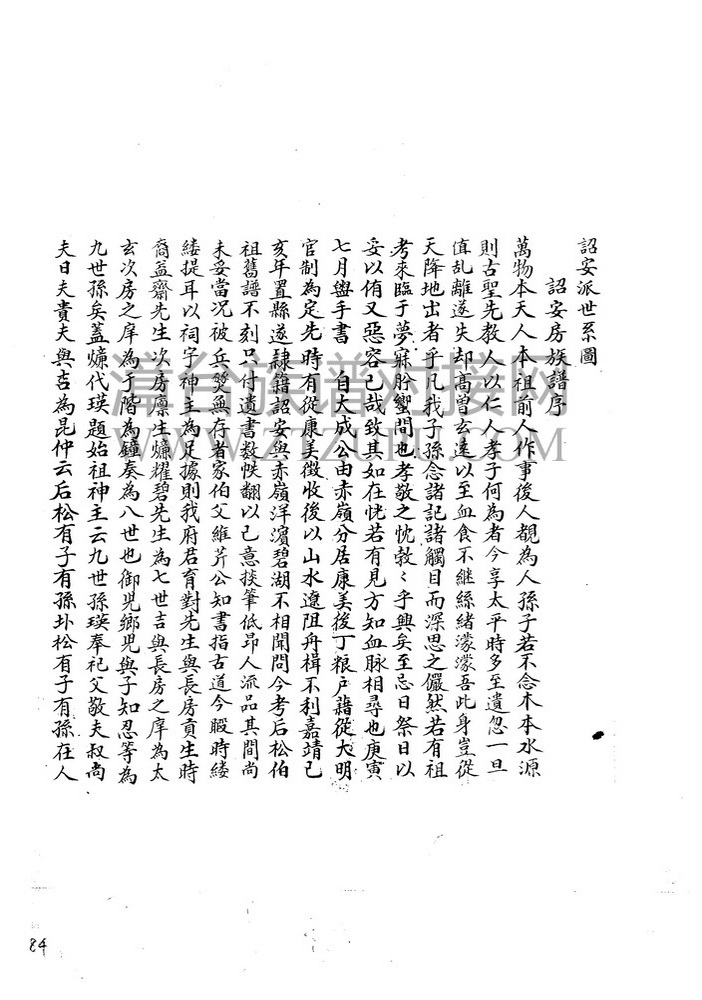 詔安派世系圖
詔安房族譜序
萬物本天人本祖前人作事後人覩為人孫子若不念木本水源
則古聖先教人以仁人孝子何為者今享太平時多至遺忽一旦
值乱離遂失却高曾玄遠以至血食不継絲緒濛濛吾此身豈從
天降地出者乎凡我子孫念諸記諸觸目而深思之儼然若有祖
考來臨于夢寐肹蠁間也孝敬之忱勃〻乎興矣至忌日祭日以
妥以侑又惡容已哉致其如在恍若有見方知血脉相尋也庚寅
七月盥手書 自大成公由赤嶺分居康美後丁粮户籍從大明
官制為定先時有從康美徵收後以山水遼阻舟楫不利嘉靖已
亥年置縣遂隸籍詔安與赤嶺洋濱碧湖不相聞問今考后松伯
祖舊譜不刻只付遺書数帙翻以己意掞筆低昂人流品其間尚
未妥當况被兵燹無存者家伯父維芹公知書指古道今暇時縷
縷提耳以祠宇神主為足據則我府君育對先生與長房貢生時
裔益齋先生次房廪生㷂耀碧先生為七世吉與長房之庠為太
玄次房之庠為于階為鐘奏為八世也御兕鄉兕與子知忍等為
九世孫矣蓋㷂代瑛題始祖神主云九世孫瑛奉祀父敬夫叔尚
夫日夫貴夫與吉為昆仲云后松有子有孫圤松有子有孫在人
84
漳台族谱对接网
WWW.ZTZUPU.COM